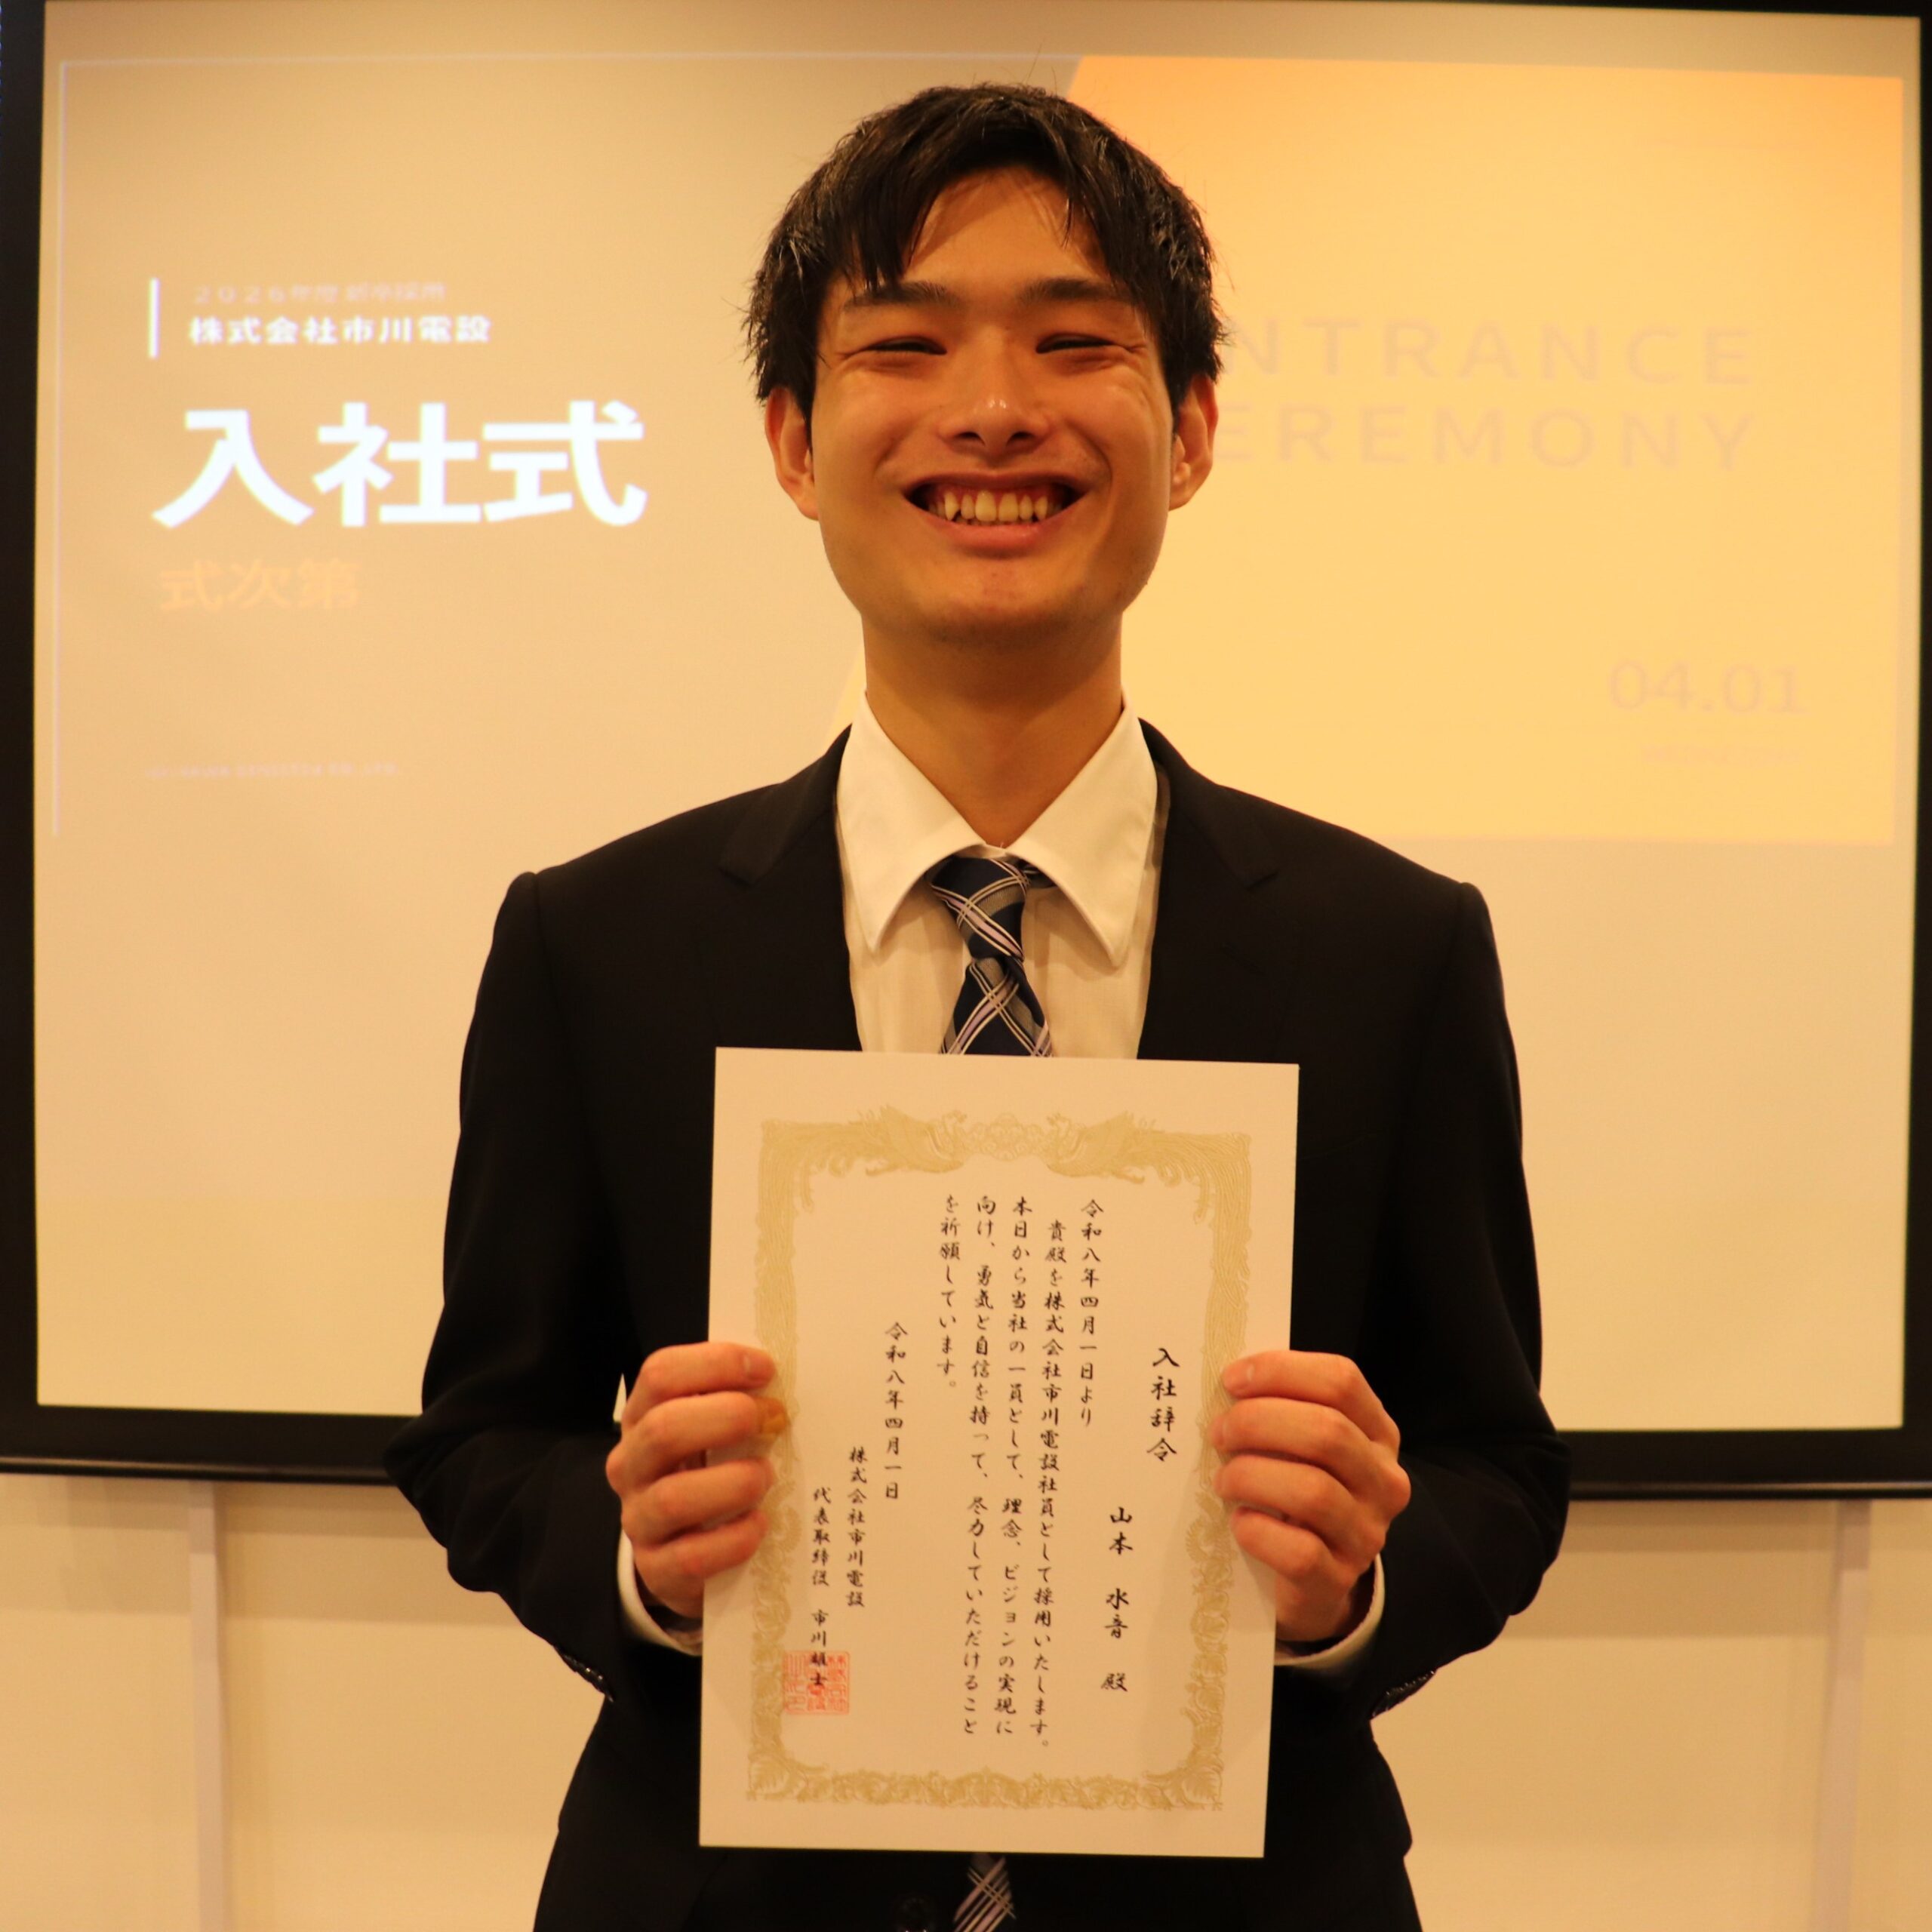 2026年度新卒採用
株式会社市川電設
入社式
式次第
ENTRANCE
CEREMONY
04.01
入社辞令
山本 水音 殿
令和八年四月一日より
貴殿を株式会社市川電設社員として採用いたします。
本日から当社の一員として、理念、ビジョンの実現に
向け、勇気と自信を持って、尽力していただけること
を祈願しています。
令和八年四月一日
株式会社市川電設
代表取締役 市川 士